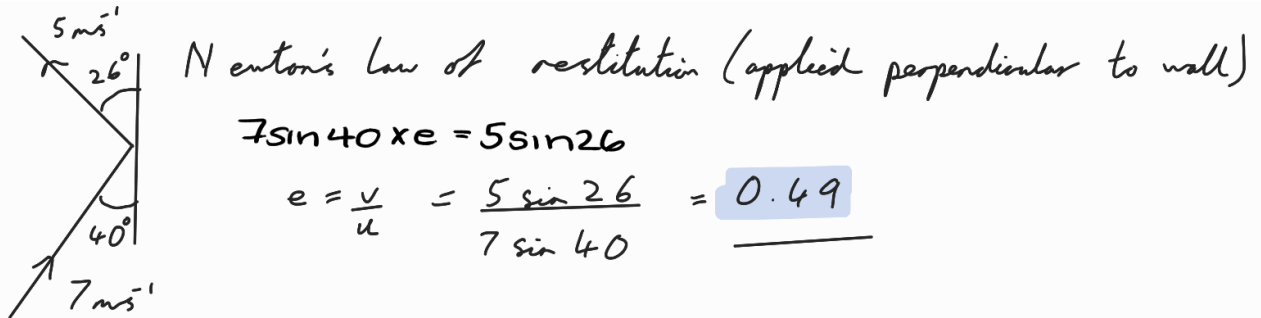 5 ms⁻¹
26°
Newton's Law of restitution (applied perpendicular to wall)
7sin40 x e = 5sin26
e = v/u = 5 sin 26 / 7 sin 40 = 0.49
40°
7 ms⁻¹